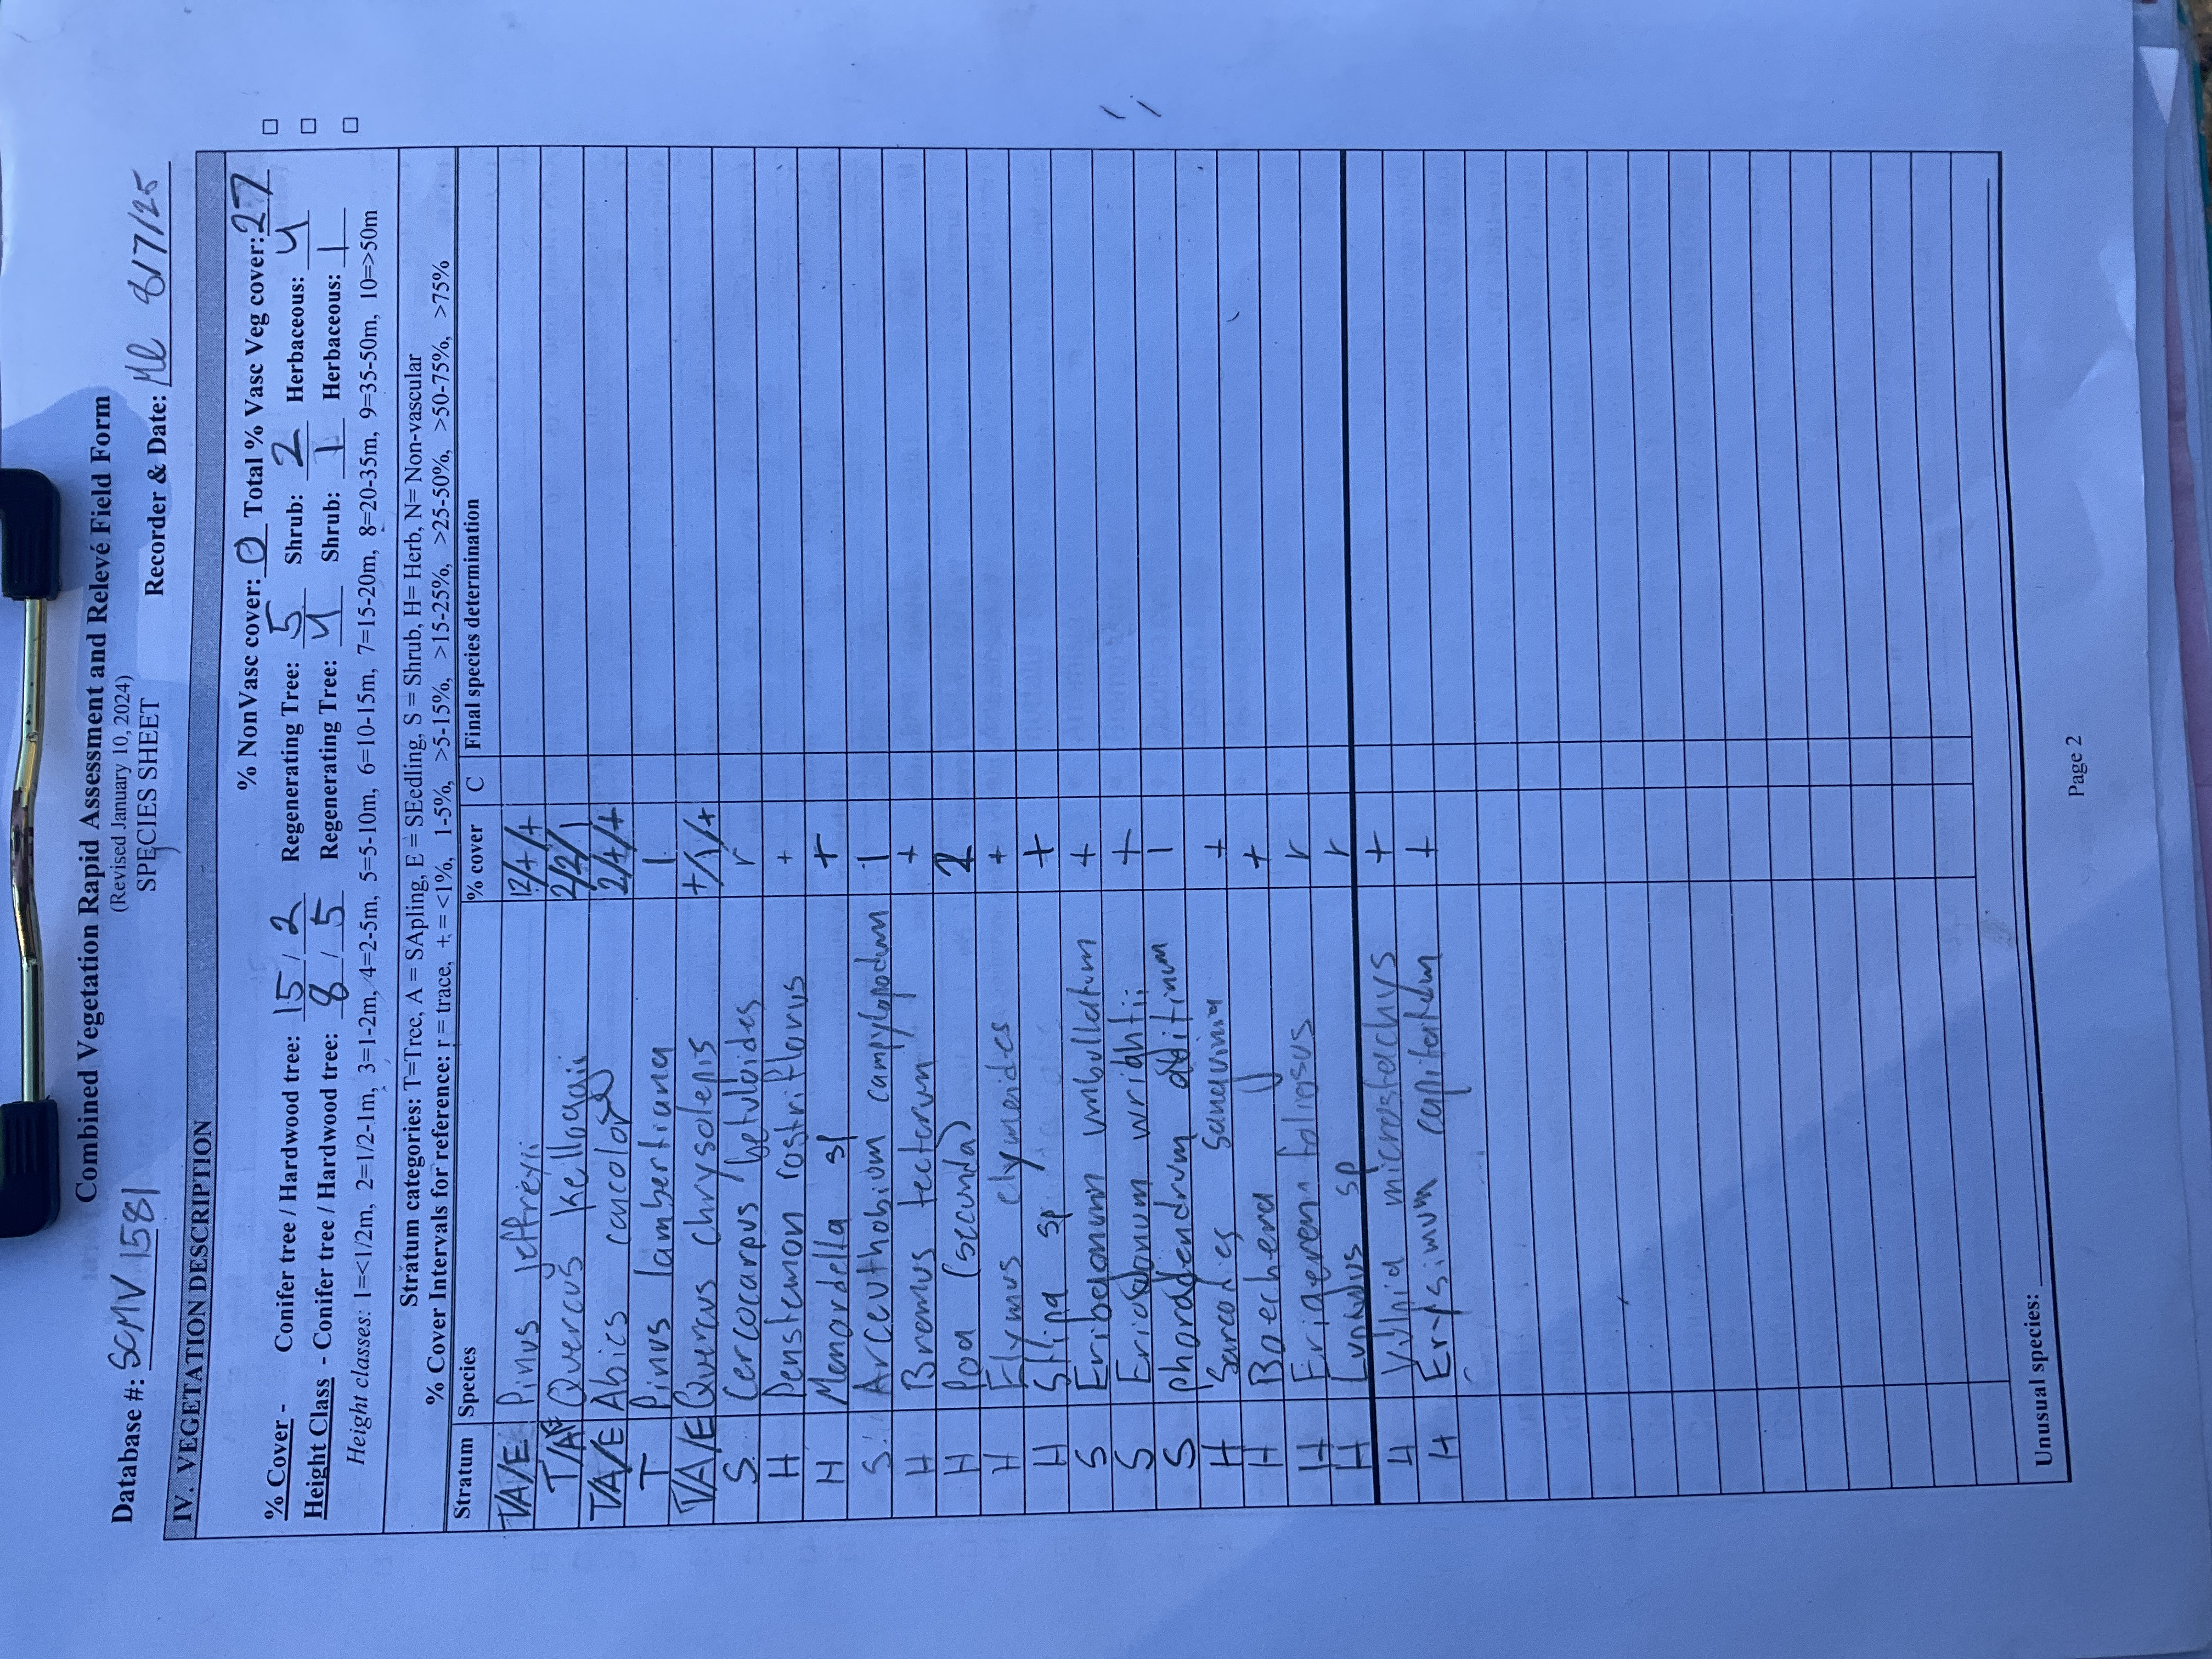 Combined Vegetation Rapid Assessment and Relevé Field Form
(Revised January 10, 2024)
SPECIES SHEET
Database #: SCMV 1581 Recorder & Date: ML 8/7/25
IV. VEGETATION DESCRIPTION
% NonVasc cover: 0 Total % Vasc Veg cover: 27
% Cover - Conifer tree / Hardwood tree: 15 / 2 Regenerating Tree: 5 Shrub: 2 Herbaceous: 4
Height Class - Conifer tree / Hardwood tree: 8 / 5 Regenerating Tree: 4 Shrub: 1 Herbaceous: 1
Height classes: 1=<1/2m, 2=1/2-1m, 3=1-2m, 4=2-5m, 5=5-10m, 6=10-15m, 7=15-20m, 8=20-35m, 9=35-50m, 10=>50m
Stratum categories: T=Tree, A = SApling, E = SEedling, S = Shrub, H= Herb, N= Non-vascular
% Cover Intervals for reference: r = trace, + = <1%, 1-5%, >5-15%, >15-25%, >25-50%, >50-75%, >75%
Stratum Species % cover C Final species determination
T/A/E Pinus jeffreyii 12/+/+
T/A/E Quercus kelloggii 2/2/1
T/A/E Abies concolor 2/+/+
T Pinus lambertiana 1
T/A/E Quercus chrysolepis +/1/+
S Cercocarpus betuloides r
H Penstemon rostriflorus +
H Monardella sp +
S Arceuthobium campylopodum 1
H Bromus tectorum +
H Poa (secunda) 2
H Elymus elymoides +
H Stipa sp +
S Eriogonum umbullatum +
S Eriogonum wrightii +
S Phoradendrum 1
H Sarcodies +
H Boechera +
H Erigeron foliosus r
H sp r
H Vulpia microstachys +
H Erysimum capitatum +
Unusual species:
Page 2